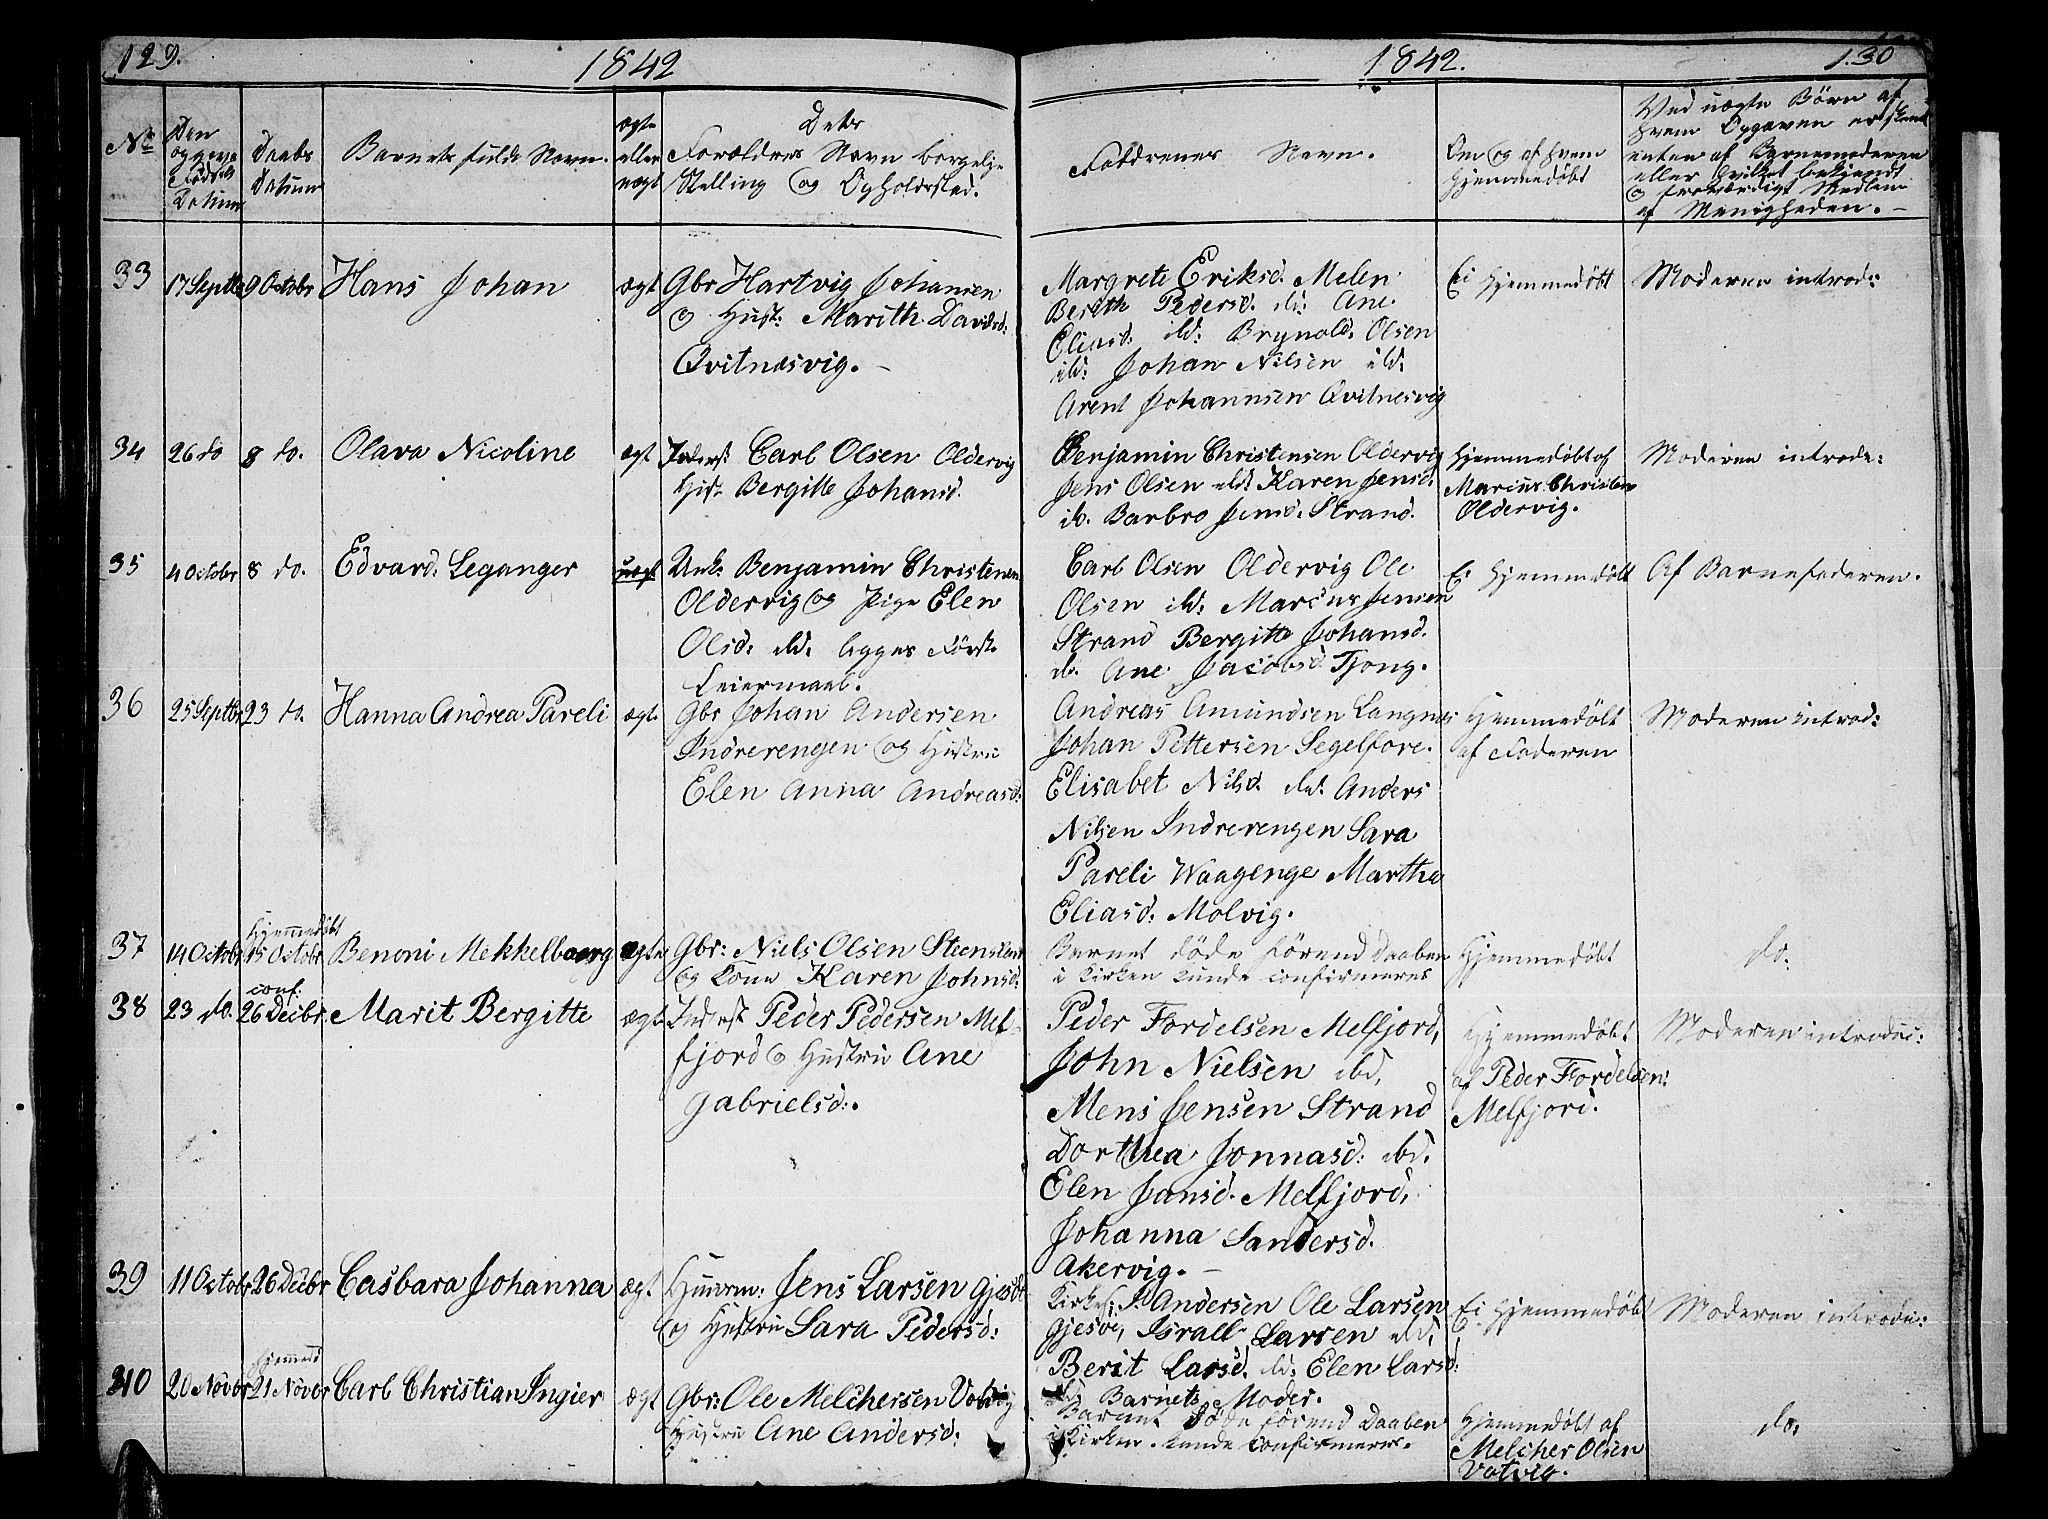 129.
1842
1842.
130
No
Den
opgivne
Fødsels
Datum
Daabs
Datum
Barnets fulde Navn.
ægte
eller
uægt
Dets
Forældres Navn borgelige
Stelling og Opholdsted.
Faddrenes Navn.
Om og af hvem
hjemmedøbt
Ved uægte Børn af
hvem Opgaven er skeed
enten af Barnemoderen
eller hvilket bekjendt
og troeværdigt Medlem
af Menigheden. -
33
17 Septbr
9 Octobr
Hans Johan
ægt
Gbr Hartvig Johansen
og Hust: Marith Davidsd:
Qvitnesvig. -
Margrete Eriksd. Melen
Berith Pedersd. ild: Ane
Eliasd. ild: Brynold. Olsen
ild: Johan Nilsen ild.
Arent Johannsen Qvitnesvig
Ei hjemmedøbt
Moderen introd:
34
26 do
8 do.
Olava Nicoline
ægt
Inderst Carl Olsen Oldervig
Hust Bergitte Johansd.
Benjamin Christensen Oldervig
Jens Olsen ild: Karen Jensd.
ib. Barbro Jensd. Strand.
Hjemmedøbt af
Marius Christen
Oldervig.
Moderen introdu:
35
4 Octobr
8 do.
Edvard. Leganger
uægt
Unk: Benjamin Christensen
Oldervig og Pige Elen
Olsd: ild. begges Første
Leiermaal.
Carl Olsen Oldervig Ole
Olsen ild: Marcus Jensen
Strand Bergitte Johansd.
ib. Ane Jacobsd Tjong.
Ei hjemmedøbt
Af Barnefaderen.
36
25 Septbr
23 do.
Hanna Andrea Pareli
ægt.
Gbr Johan Andersen
Indrerengen og Hustru
Elen Anna Andreasd:
Andreas Amundsen Langnes
Johan Pettersen Segelfore.
Elisabet Nilsd. ild. Anders
Nilsen Indrerengen Sara
Pareli Waagenge Martha
Eliasd: Molvig.
Hjemmedøbt
af Faderen
Moderen introd:
37
14 Octobr
Hjemmedøbt
15 Octobr
Benoni Mekkelborg
ægte
Gbr: Niels Olsen Steensland
og Kone Karen Johnsd:
Barnet døde førend Daaben
i Kirken kunde confirmeres
Hjemmedøbt
do.
38
23 do.
conf.
26 Decbr.
Marit Bergitte
ægt.
Inderst Peder Pedersen Mel-
fjord og Hustru Ane
Gabrielsd:.
Peder Fordelsen Melfjord,
John Nielsen ibd,
Mens Jensen Strand
Dorthea Jonnasd: ibd.
Elen Jansd. Melfjord,
Johanna Sandersd.
Akervig. -
Hjemmedøbt
af Peder Fordelsen:
Melfjord.
Moderen introduc:
39
11 Octobr
26 Decbr
Casbara Johanna
ægt
Huusm: Jens Larsen Gjesø
og Hustru Sara Pedersd:
Kirkes: J. Andersen Ole Larsen
Gjesøe, Israel Larsen ild:
Berit Larsd. ild. Elen Larsd:
ild Barnets Moder.
Ei hjemmedøbt
Moderen introdu:
40
20 Novbr
hjemmed
21 Novbr
Carl Christian Ingier
ægt
Gbr: Ole Melchersen Vatvig
Hustru Ane Andersd:
Barnet døde førend Daaben
i Kirken kunde confirmeres.
Hjemmedøbt af
Melcher Olsen
Vatvig.
do.